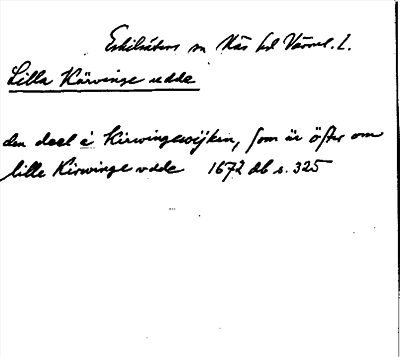 Eskilsäters sn Näs hd Värml. l.
Lilla Kärvinge udde
den deel é Kirwingewijken, som är öster om
lille Kirwinge vdde 1672 db s. 325